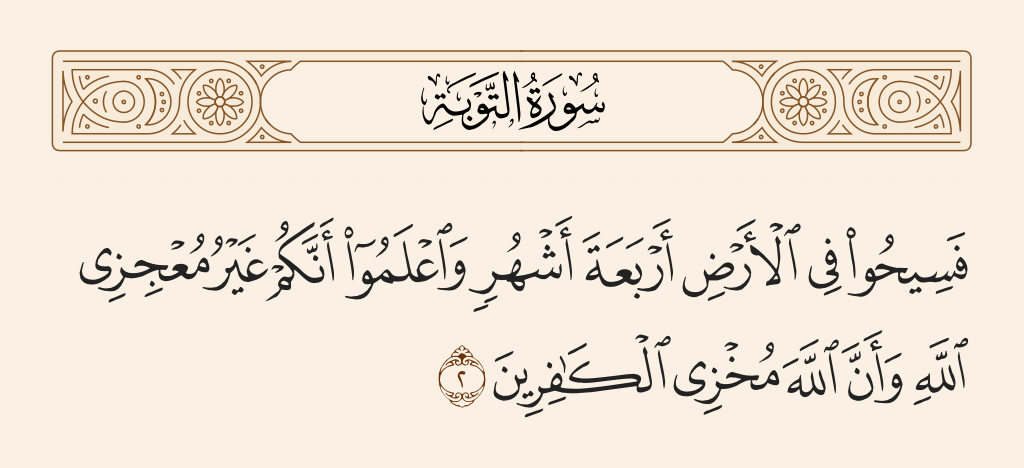 سُورَةُ التَّوۡبَةِ
فَسِيحُواْ فِي ٱلۡأَرۡضِ أَرۡبَعَةَ أَشۡهُرٖ وَٱعۡلَمُوٓاْ أَنَّكُمۡ غَيۡرُ مُعۡجِزِي
ٱللَّهِ وَأَنَّ ٱللَّهَ مُخۡزِي ٱلۡكَٰفِرِينَ ٢